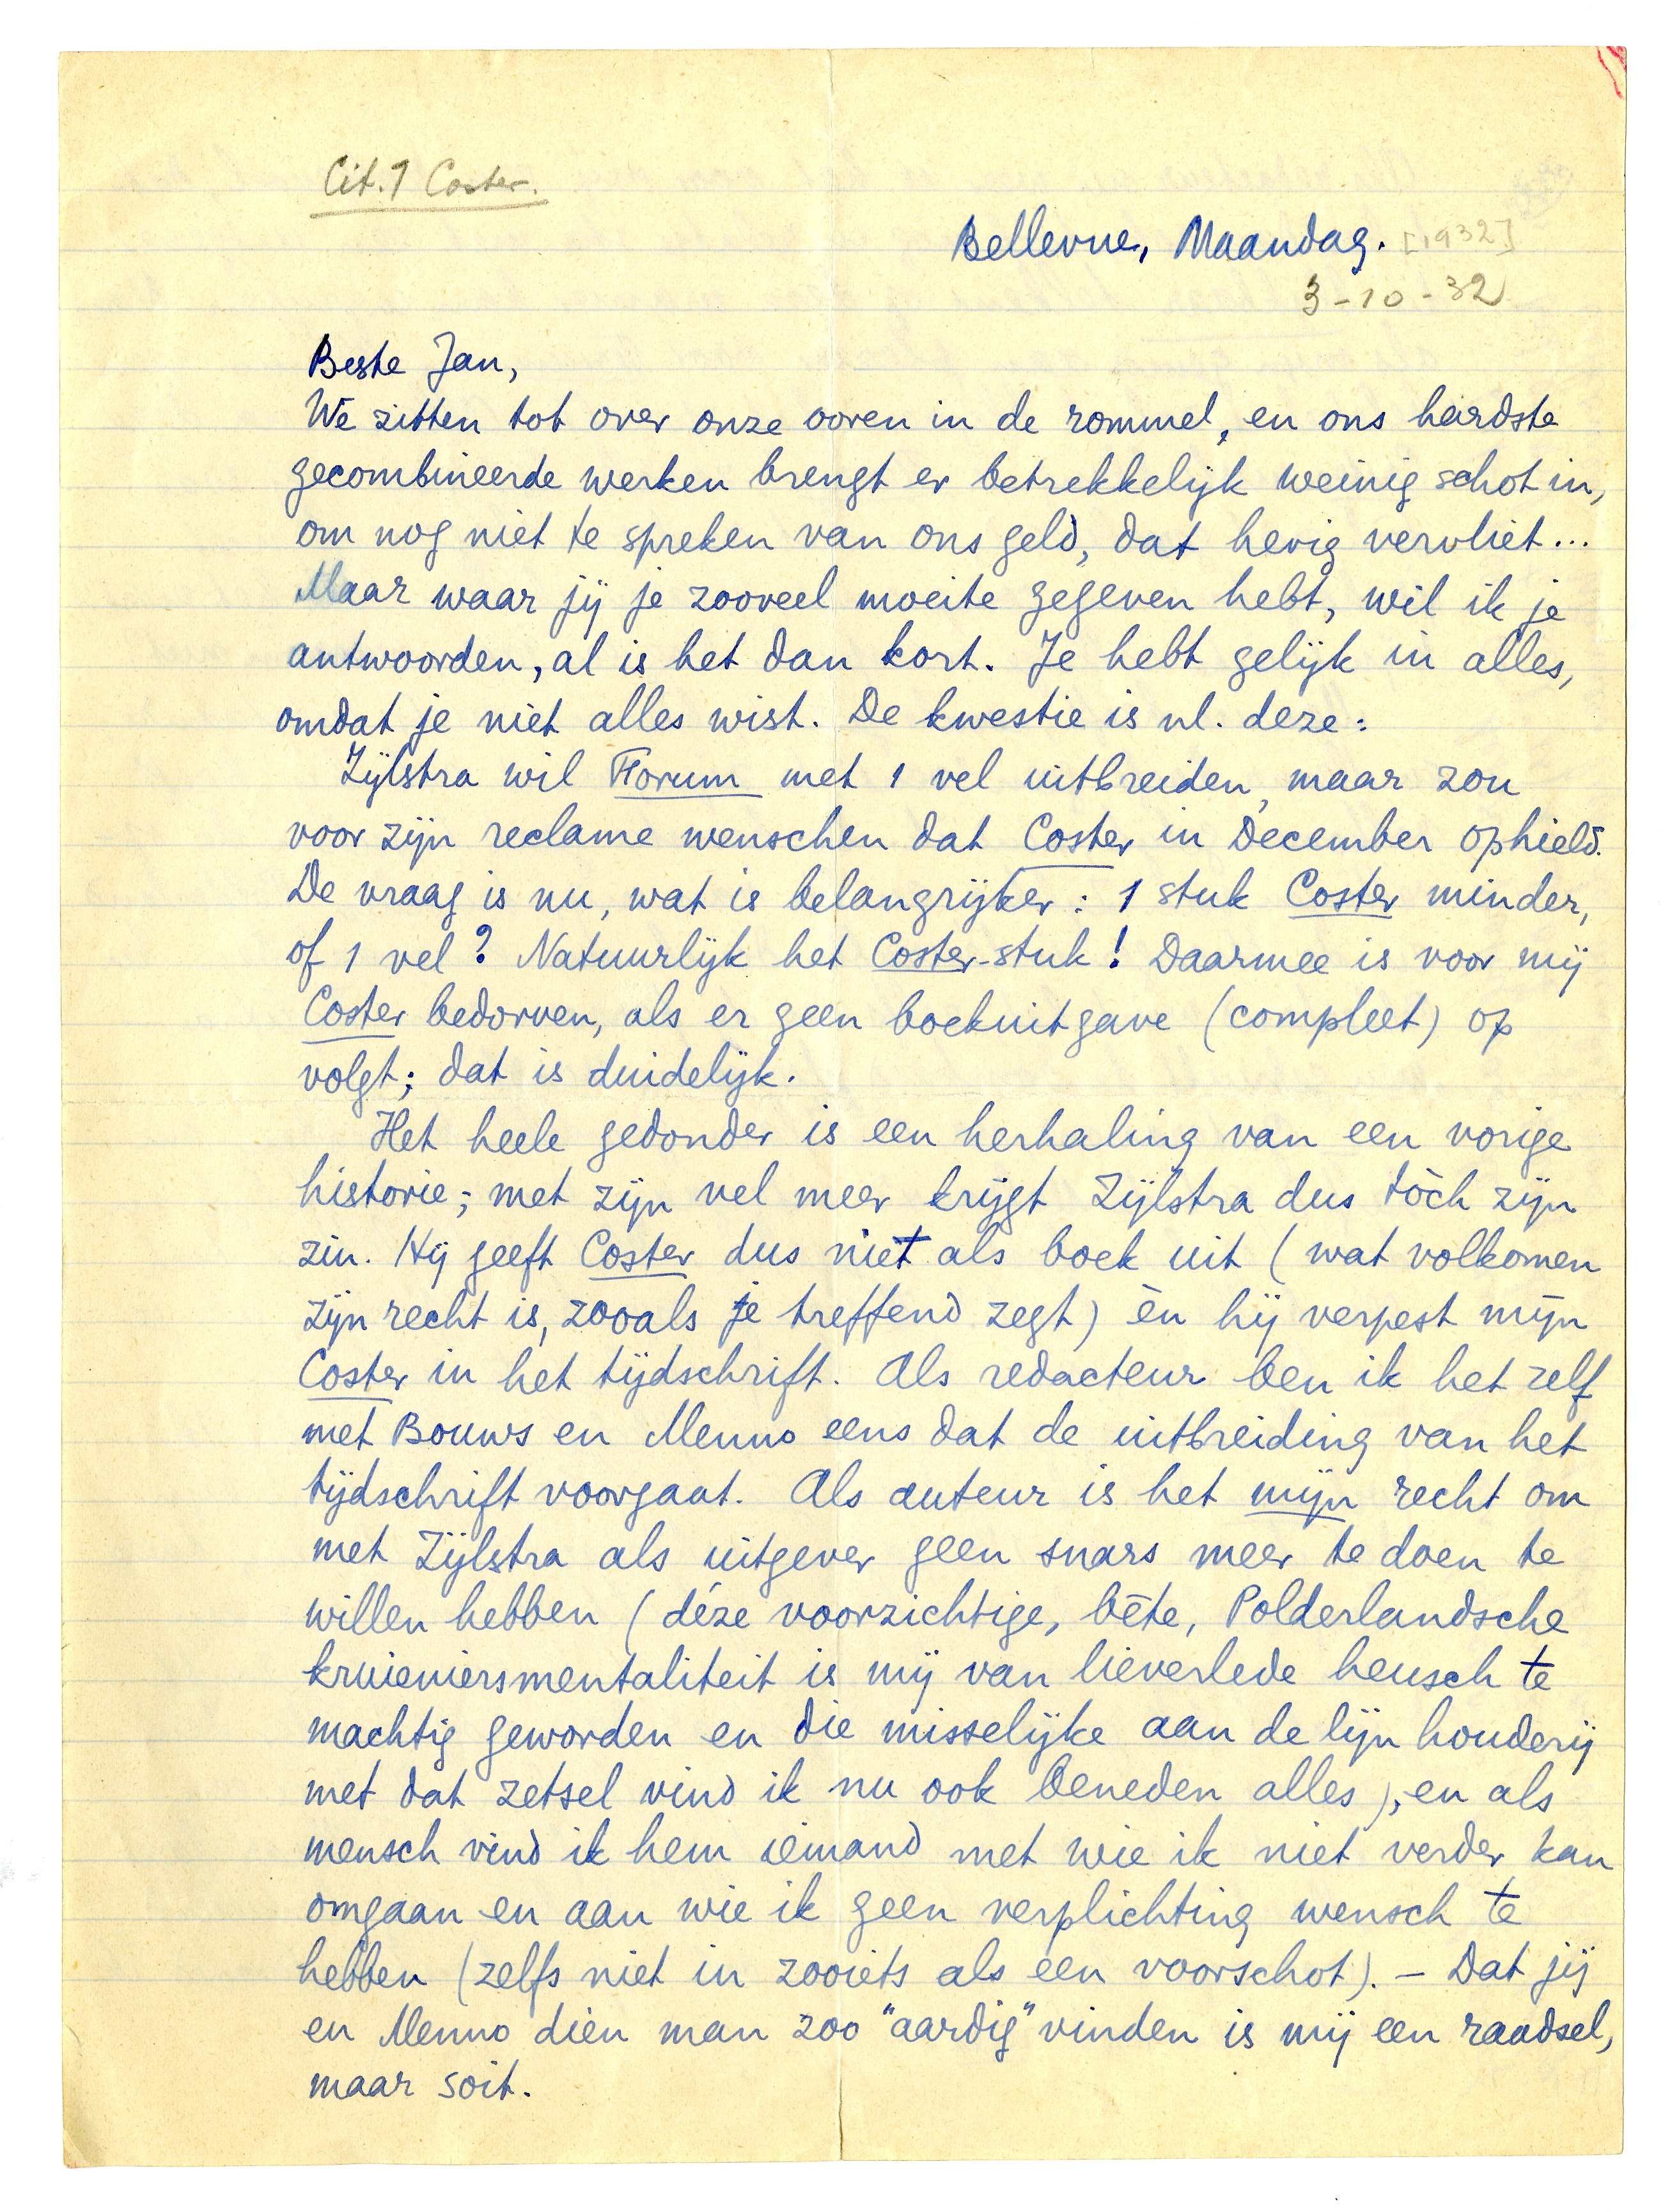 Cit. 1 Coster.
Bellevue, Maandag. [1932]
3-10-32
Beste Jan,
We zitten tot over onze ooren in de rommel, en ons hardste
gecombineerde werken brengt er betrekkelijk weinig schot in,
om nog niet te spreken van ons geld, dat hevig vervliet...
Maar waar jij je zooveel moeite gegeven hebt, wil ik je
antwoorden, al is het dan kort. Je hebt gelijk in alles,
omdat je niet alles wist. De kwestie is nl. deze:
Zijlstra wil Forum met 1 vel uitbreiden, maar zou
voor zijn reclame wenschen dat Coster in December ophield.
De vraag is nu, wat is belangrijker: 1 stuk Coster minder,
of 1 vel? Natuurlijk het Coster-stuk! Daarmee is voor mij
Coster bedorven, als er geen boekuitgave (compleet) op
volgt; dat is duidelijk.
Het heele gedonder is een herhaling van een vorige
historie; met zijn vel meer krijgt Zijlstra dus tòch zijn
zin. Hij geeft Coster dus niet als boek uit (wat volkomen
zijn recht is, zooals je treffend zegt) èn hij verpest mijn
Coster in het tijdschrift. Als redacteur ben ik het zelf
met Bouws en Menno eens dat de uitbreiding van het
tijdschrift voorgaat. Als auteur is het mijn recht om
met Zijlstra als uitgever geen snars meer te doen te
willen hebben (déze voorzichtige, bête, Polderlandsche
kruieniersmentaliteit is mij van lieverlede heusch te
machtig geworden en die misselijke aan de lijn houderij
met dat zetsel vind ik nu ook beneden alles), en als
mensch vind ik hem iemand met wie ik niet verder kan
omgaan en aan wie ik geen verplichting wensch te
hebben (zelfs niet in zooiets als een voorschot). – Dat jij
en Menno dien man zoo "aardig" vinden is mij een raadsel,
maar soit.